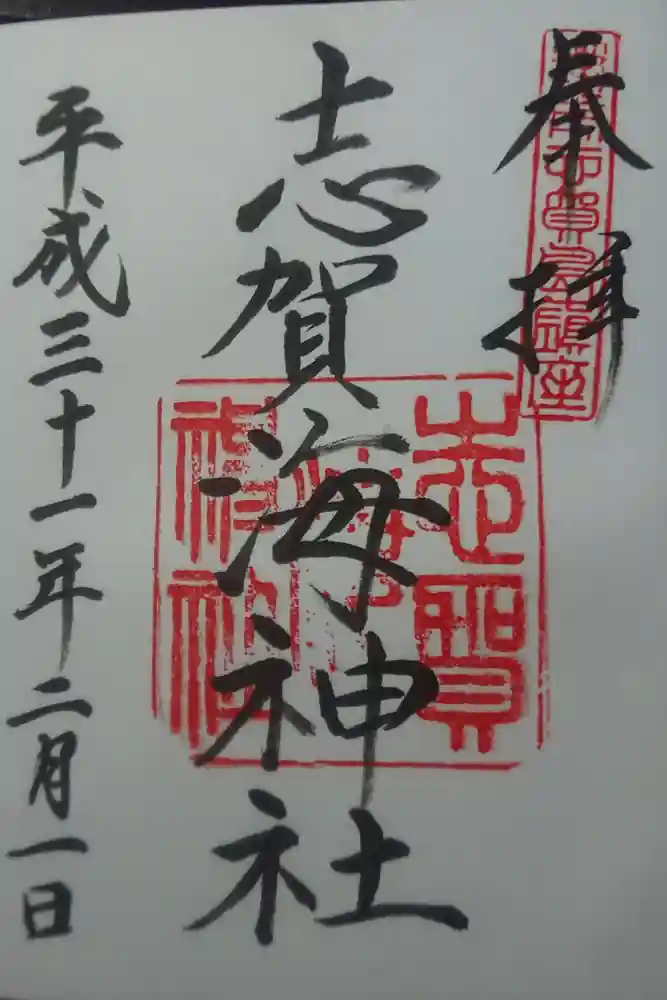 奉拝
志賀海神社
平成三十一年二月一日
志賀
海
神社